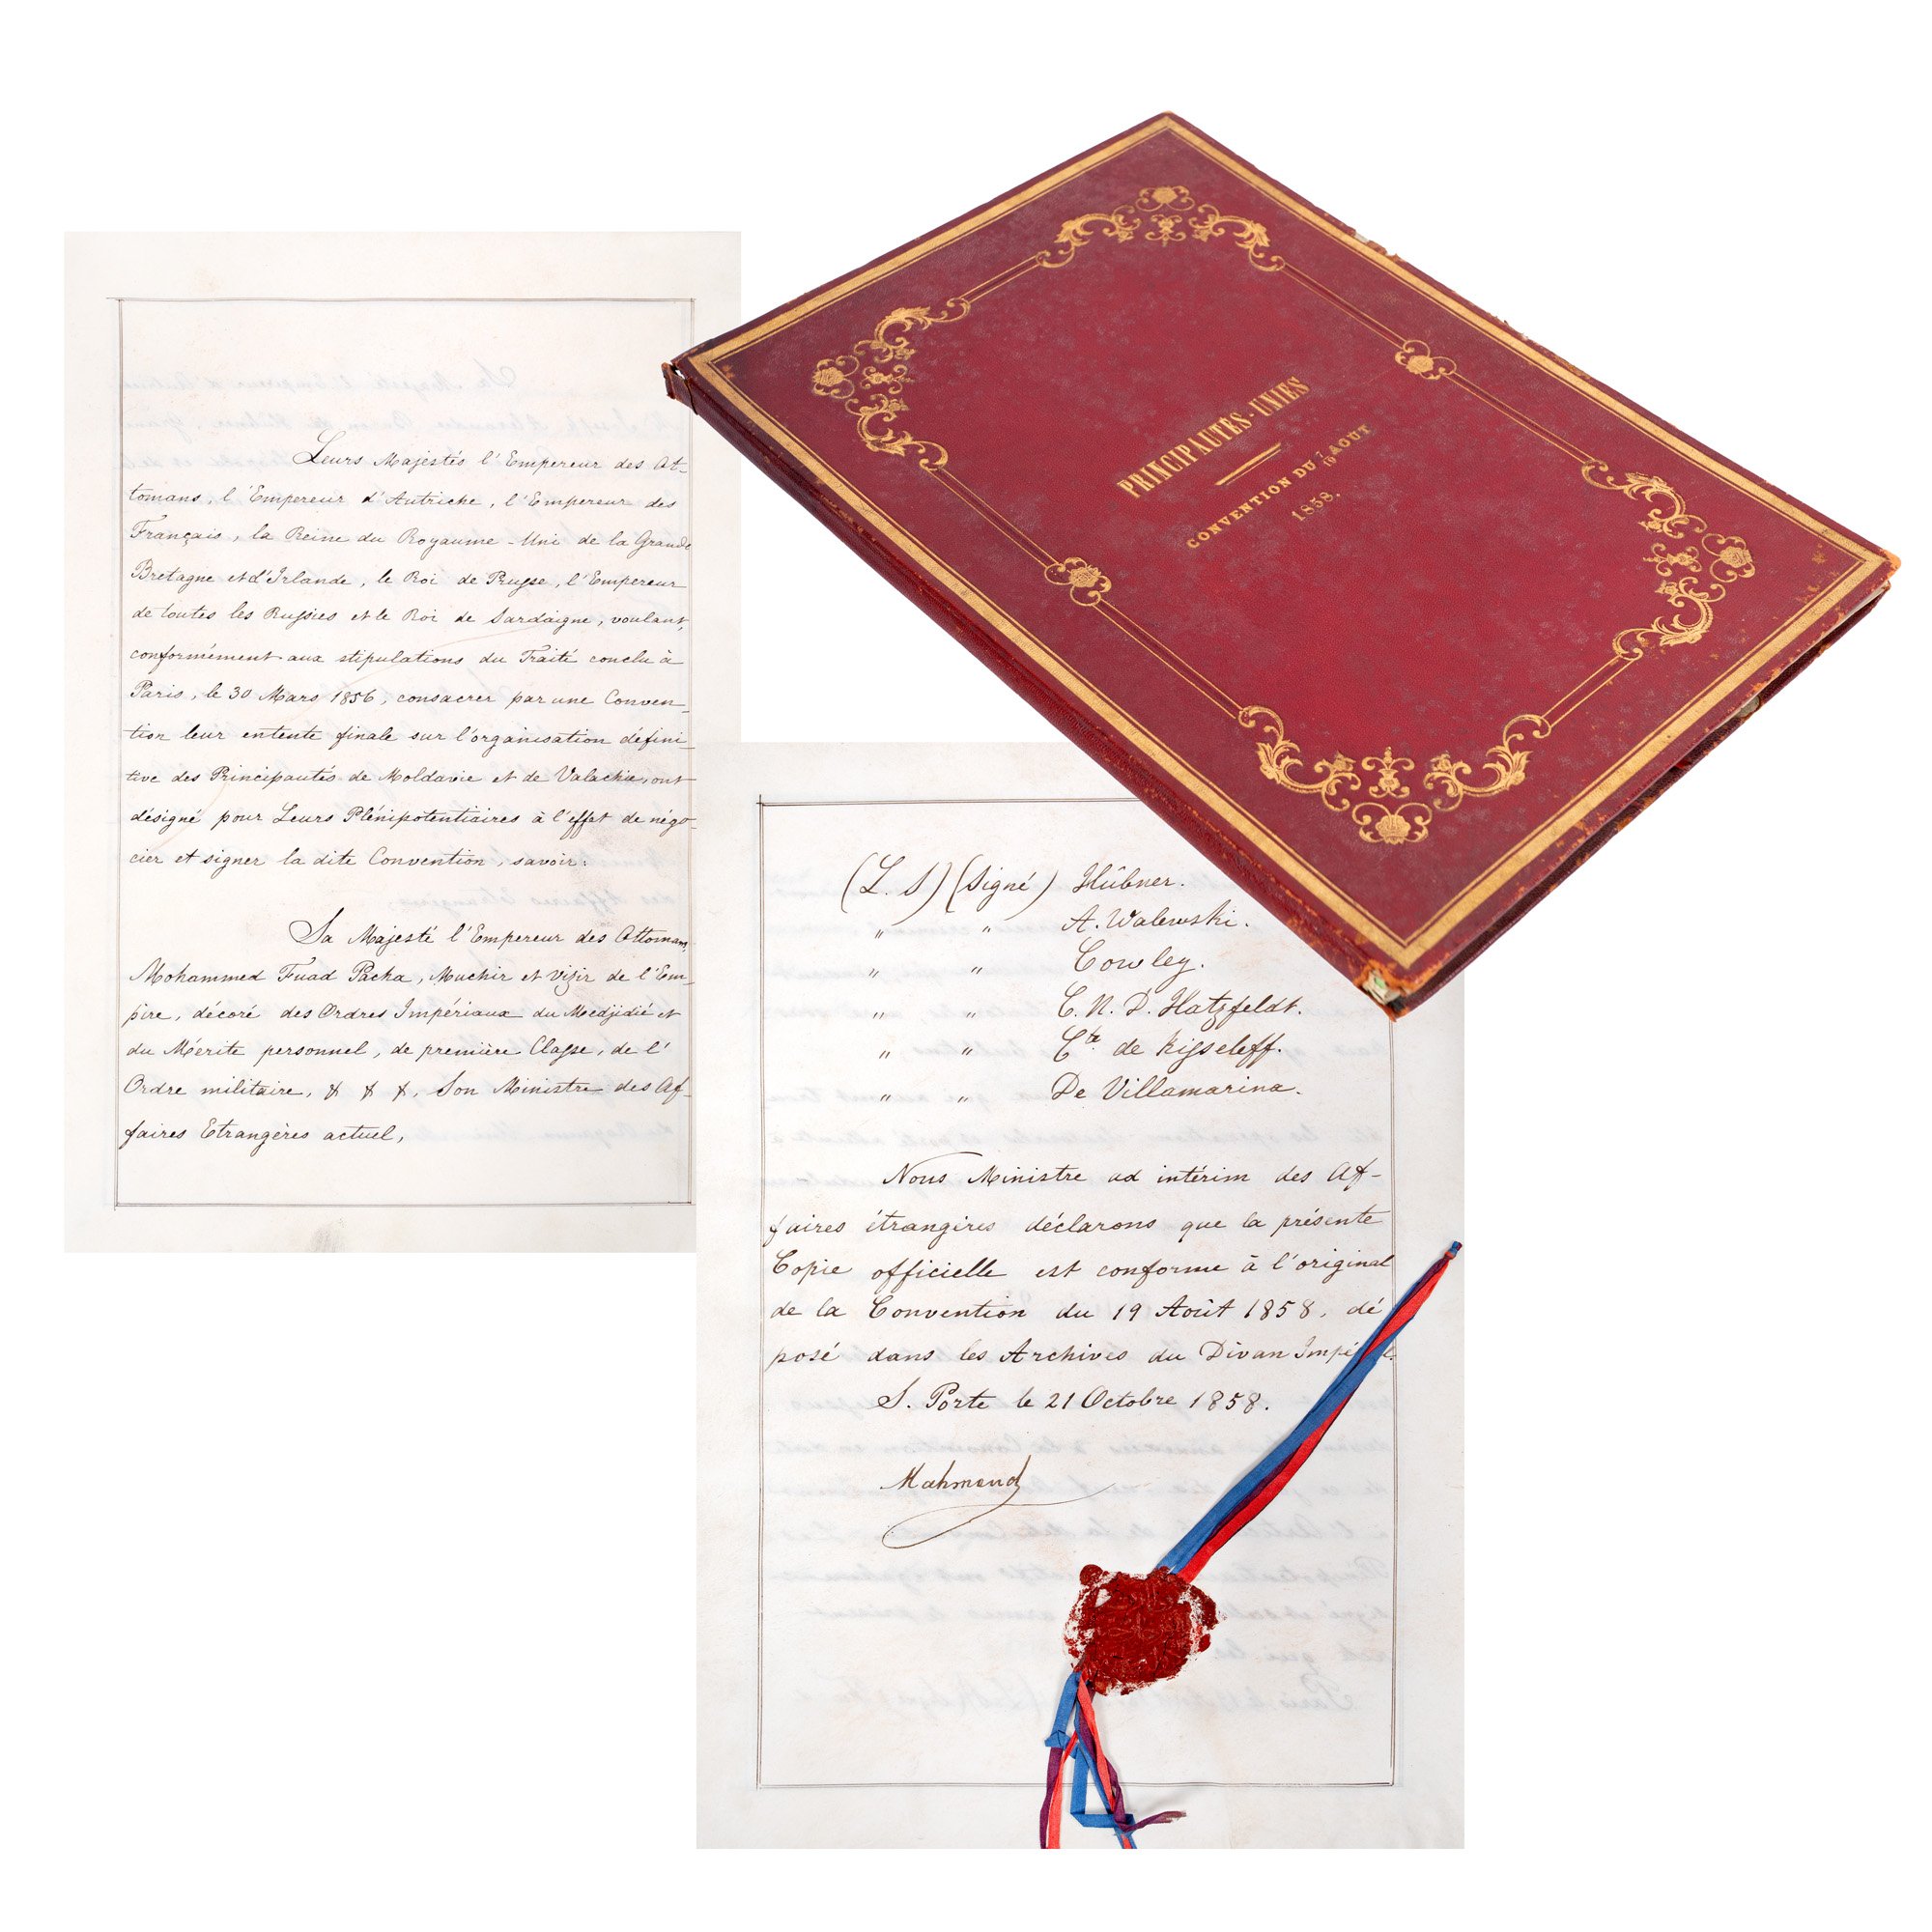 Leurs Majestés l'Empereur des Ot-
tomans, l'Empereur d'Autriche, l'Empereur des
Français, la Reine du Royaume-Uni de la Grande
Bretagne et d'Irlande, le Roi de Prusse, l'Empereur
de toutes les Russies et le Roi de Sardaigne, voulant,
conformément aux stipulations du Traité conclu à
Paris, le 30 Mars 1856, consacrer par une Conven-
tion leur entente finale sur l'organisation défini-
tive des Principautés de Moldavie et de Valachie, ont
désigné pour Leurs Plénipotentiaires à l'effet de négo-
cier et signer la dite Convention, savoir:
Sa Majesté l'Empereur des Ottomans,
Mohammed Fuad Pacha, Muchir et Vizir de l'Em-
pire, décoré des Ordres Impériaux du Medjidié et
du Mérite personnel, de première Classe, de l'
Ordre militaire, & & &, Son Ministre des Af-
faires Etrangères actuel,
PRINCIPAUTÉS-UNIES
CONVENTION DU 7/19 AOUT
1858.
(L. S) (Signé) Hübner.
" " A. Walewski.
" " Cowley.
" " C. M. D. Hatzfeldt.
" " Cte de Kisseleff.
" " De Villamarina.
Nous Ministre ad intérim des Af-
faires étrangères déclarons que la présente
Copie officielle est conforme à l'original
de la Convention du 19 Août 1858, dé
posé dans les Archives du Divan Impérial.
S. Porte le 21 Octobre 1858.
Mahmoud